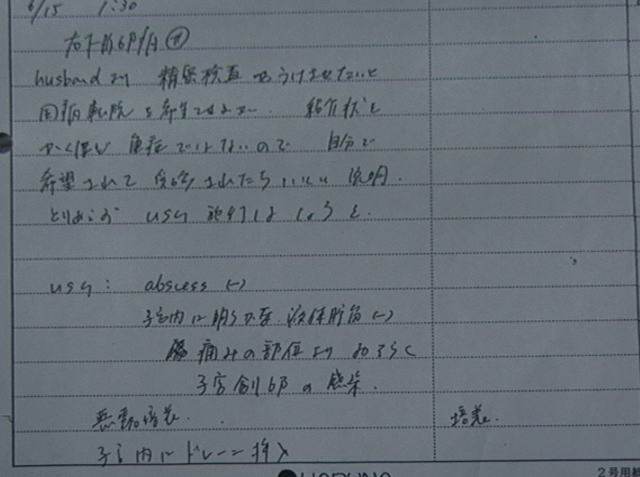 6/15 1:30
右下腹部痛 (+)
husband より 精密検査をうけさせたいと
国病転院を希望
重症ではないので 自分で
希望されて 受診されたらいい 説明.
とりあえず usg 施行しましょうと.
usg: abscess (-)
子宮内に明らかな 液体貯留 (-)
痛みの部位より おそらく
子宮創部の感染.
悪露培養. 培養.
子宮内にドレーン挿入
2号用紙